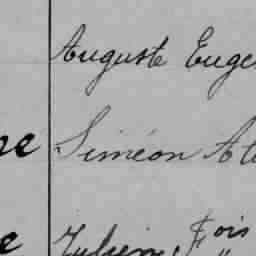 Auguste Euge
ne Siméon At
e Julien, Fois